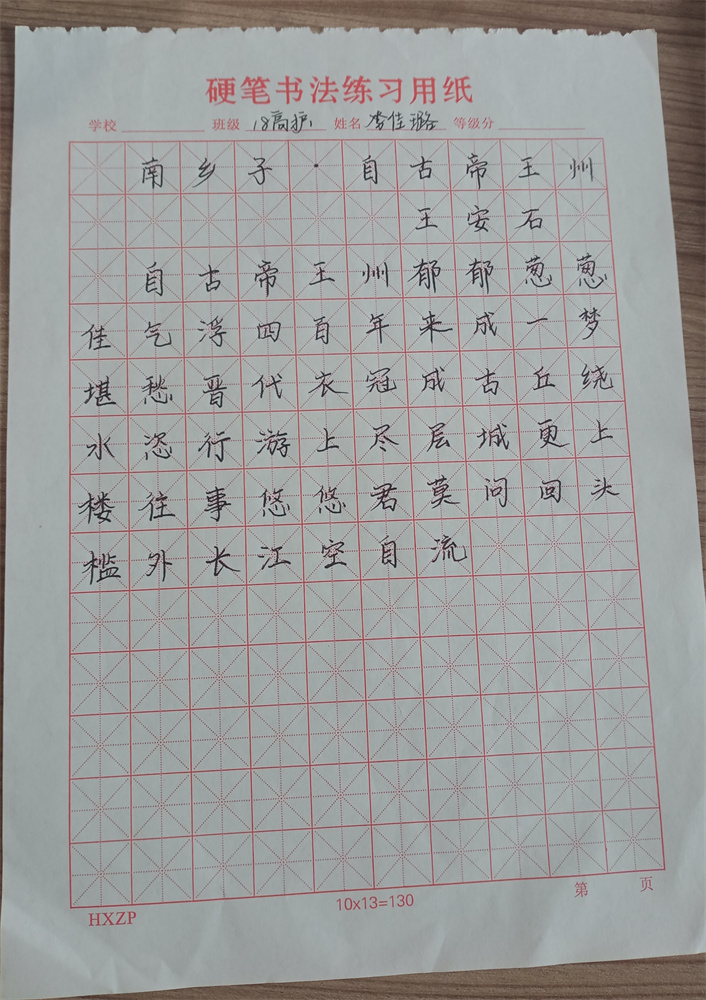 硬笔书法练习用纸
学校 班级 18高护 姓名 李佳璐 等级分
南乡子·自古帝王州
王安石
自古帝王州郁郁葱葱
佳气浮四百年来成一梦
堪愁晋代衣冠成古丘绕
水恣行游上尽层城更上
楼往事悠悠君莫问回头
槛外长江空自流
HXZP 10x13=130 第 页